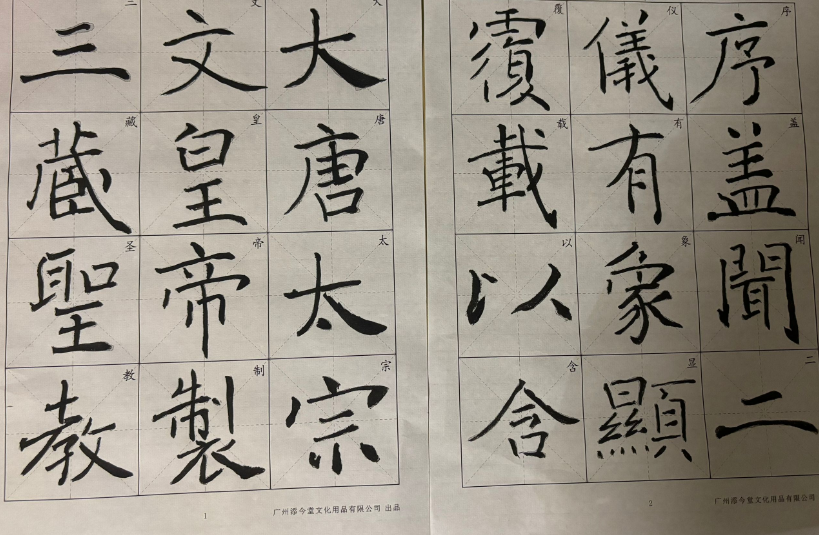 大唐太宗
大唐太宗
文皇帝製
文皇帝制
三蔵聖教
三藏圣教
1
广州添今堂文化用品有限公司 出品
序盖聞二
序盖闻二
儀有象顯
仪有象显
覆載以含
覆载以含
2
广州添今堂文化用品有限公司